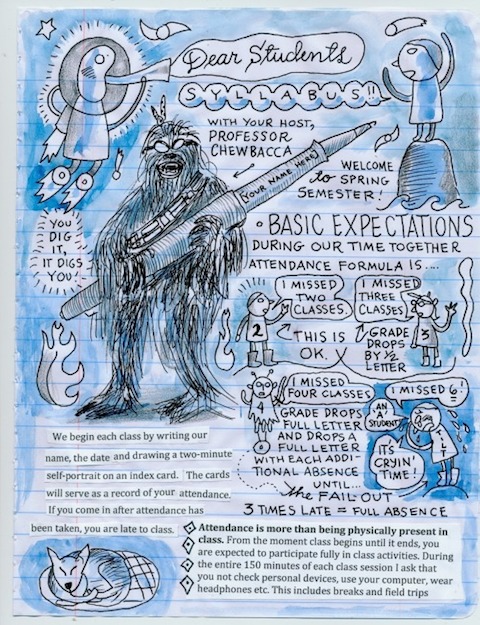 Dear Students
SYLLABUS!!
WITH YOUR HOST,
PROFESSOR
CHEWBACCA
(YOUR NAME HERE)
WELCOME
to SPRING
SEMESTER!
YOU
DIG
IT,
IT DIGS
YOU.
• BASIC EXPECTATIONS
DURING OUR TIME TOGETHER
ATTENDANCE FORMULA IS....
I MISSED
TWO
CLASSES.
2
THIS IS
OK.
I MISSED
THREE
CLASSES
3
GRADE
DROPS
BY 1/2
LETTER
I MISSED
FOUR CLASSES
4
GRADE DROPS
FULL LETTER
AND DROPS A
FULL LETTER
WITH EACH ADDI
TIONAL ABSENCE
UNTIL...
I MISSED 6!
AN
STUDENT
ITS
CRYIN'
TIME!
the FAIL OUT
3 TIMES LATE = FULL ABSENCE
We begin each class by writing our
name, the date and drawing a two-minute
self-portrait on an index card. The cards
will serve as a record of your attendance.
If you come in after attendance has
been taken, you are late to class.
Attendance is more than being physically present in
class. From the moment class begins until it ends, you
are expected to participate fully in class activities. During
the entire 150 minutes of each class session I ask that
you not check personal devices, use your computer, wear
headphones etc. This includes breaks and field trips